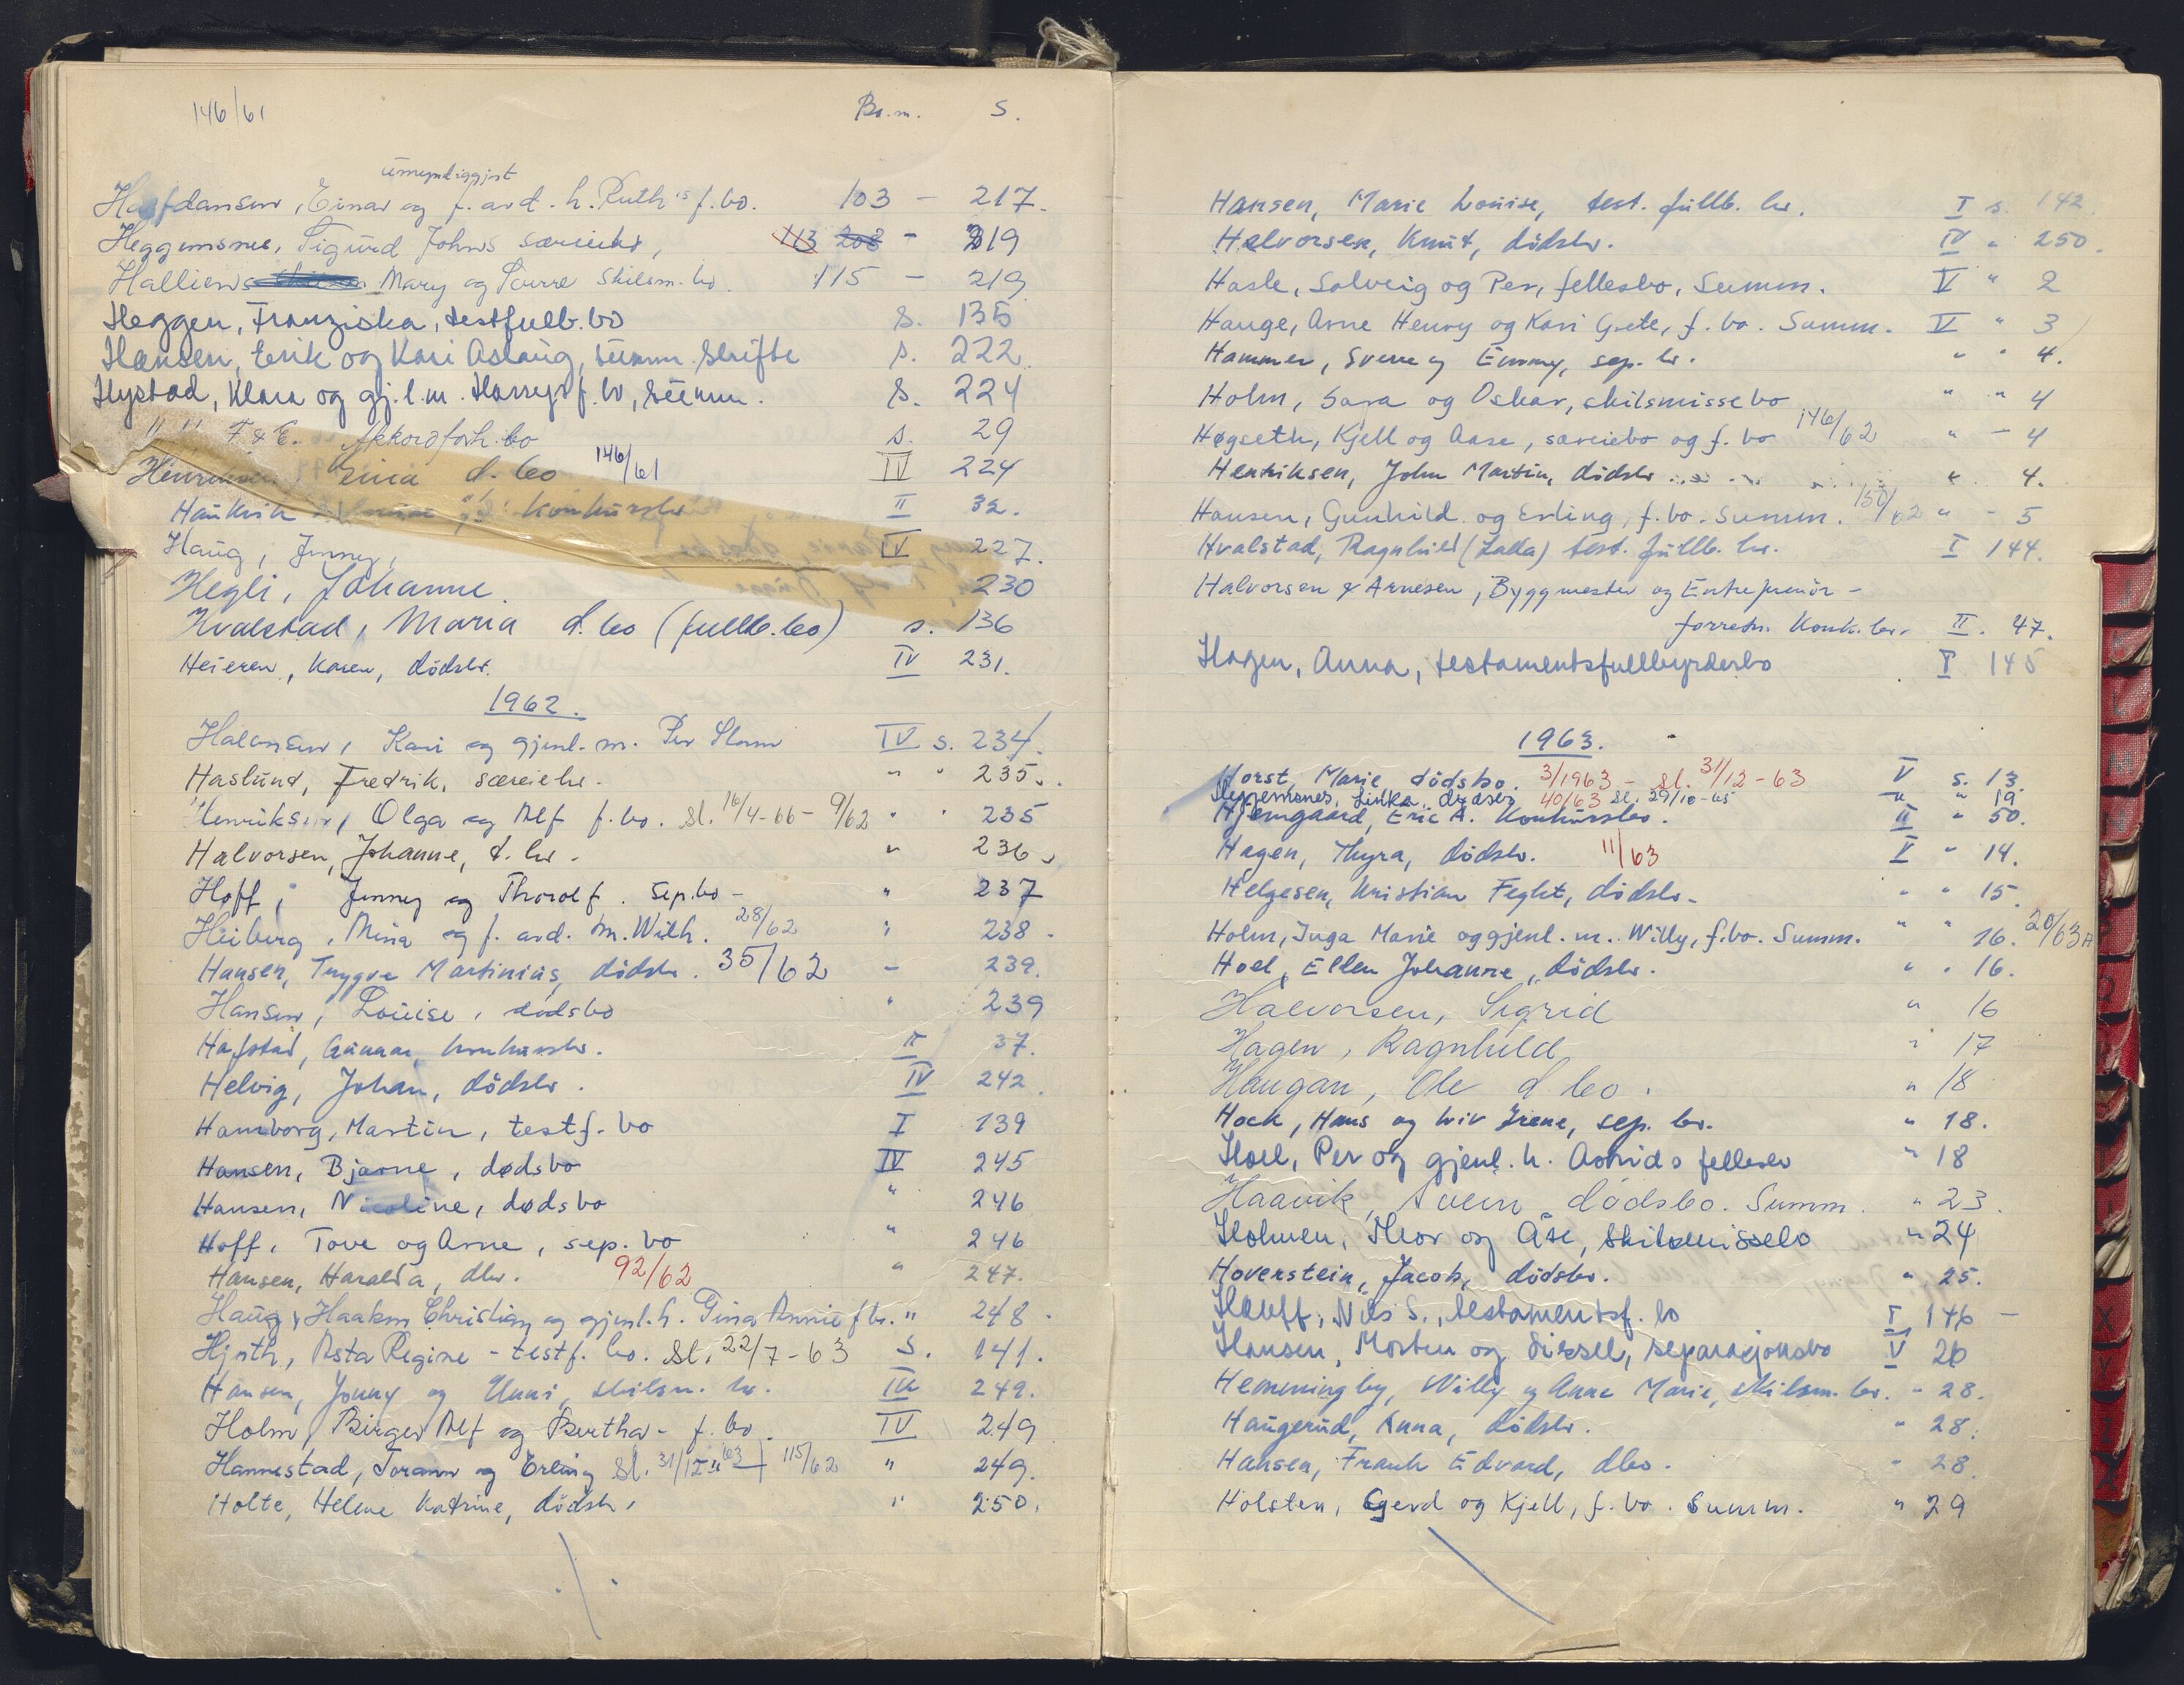 146/61 Bo.m. S.
umyndiggjort
Halfdansen, Einar og f. avd. h. Ruth's f. bo. 103 - 217.
Heggemsnes, Sigurd Johns særeiebo, 113 208 - 219
Halliens Mary og Sverre Skilsm. bo. 115 - 219
Heggen, Franziska, testfullb. bo s. 135
Hansen, Erik og Kari Aslaug, summ. skifte s. 222
Hystad, Klara og gj.l.m. Harrys f. bo, summ. s. 224
" " F & E. Akkordforh. bo s. 29
Henriksen, d. bo 146/61 IV 224
Haukvik konkursbo II 32.
Haug, Jenny, IV 227.
Hegli, Johanne. 230
Hvalstad, Maria d. bo (fullb. bo) s. 136
Heieren, Karen, dödsbo. IV 231.
1962.
Halvorsen, Kari og gjenl. m. Per IV s. 234.
Haslund, Fredrik, særeiebo. " " 235.
Henriksen, Olga og Alf f. bo. Sl. 16/4-66 - 9/62 " " 235
Halvorsen, Johanne, d. bo. " 236
Hoff, Jenny og Thorolf. Sep. bo - " 237
Heiberg, Mina og f. avd. m. Wilh. 28/62 " 238.
Hansen, Trygve Martinius, dödsbo. 35/62 - 239.
Hansen, Louise, dødsbo " 239
Hafstad, Gunnar, konkursbo. II 37.
Helvig, Johan, dödsbo. IV 242.
Hamborg, Martin, testf. bo I 139
Hansen, Bjarne, dødsbo IV 245
Hansen, Nicoline, dødsbo " 246
Hoff, Tove og Arne, sep. bo " 246
Hansen, Haralda, dbo. 92/62 " 247.
Haug, Haakon Christian og gjenl. h. Tina Annie f bo. " 248.
Hjorth, Asta Regine - testf. bo. Sl. 22/7-63 S. 141.
Hansen, Jonny og Unni, skilsm. bo. IV 249.
Holm, Birger Alf og Bertha - f. bo. IV 249
Hannestad, Torann og Erling Sl. 31/12 - 63 115/62 " 249.
Holte, Helene Katrine, dödsbo, " 250.
Hansen, Marie Louise, test. fullb. bo. I s. 142.
Halvorsen, Knut, dödsbo. IV " 250.
Hasle, Solveig og Per, fellesbo, Summ. V " 2
Hauge, Arne Henry og Kari Grete, f. bo. Summ. V " 3
Hammer, Sverre og Emmy, sep. bo. " " 4.
Holm, Sara og Oskar, skilsmissebo " " 4
Høgseth, Kjell og Aase, særeiebo og f. bo 146/62 " - 4
Henriksen, John Martin, dödsbo " 4.
Hansen, Gunhild og Erling, f. bo. Summ. 150/62 " - 5
Hvalstad, Ragnhild (Lalla) test. fullb. bo. I 144.
Halvorsen & Arnesen, Byggmester og Entreprenör -
forretn. Konk. bo. II. 47.
Hagen, Anna, testamentsfullbyrderbo I 145
1963.
Horst, Marie dödsbo. 3/1963 - Sl. 31/12-63 V s. 13.
Heggemsnes, Linka, dødsbo 40/63 Sl. 29/10-65 " " 19
Hjemgaard, Eric A. Konkursbo. II " 50.
Hagen, Thyra, dödsbo. 11/63 V " 14.
Helgesen, Kristian Feght, dödsbo. " " 15.
Holm, Inga Marie og gjenl. m. Willy, f. bo. Summ. " " 16. 20/63 A
Hoel, Ellen Johanne, dödsbo. " " 16.
Halvorsen, Sigrid " 16
Hagen, Ragnhild " 17
Haugan, Ole d bo. " 18
Hock, Hans og Liv Irene, sep. bo. " 18.
Hoel, Per og gjenl. h. Astrids fellesbo " 18
Haavik, Svein dödsbo. Summ. " 23.
Holmen, Thor og Åse, skilsmissebo " 24
Hoverstein, Jacob, dödsbo. " 25.
Hauff, Nils S., testamentsf. bo I 146 -
Hansen, Morten og Sissel, separasjonsbo V 26
Hemmingby, Willy og Anne Marie, skilsm. bo. - 28.
Haugerud, Anna, dödsbo. " 28.
Hansen, Frank Edvard, dbo. " 28.
Holsten, Gerd og Kjell, f. bo. Summ. " 29